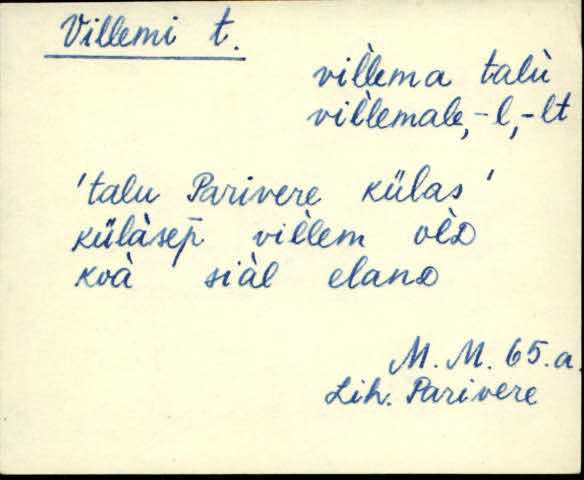 Villemi t.
vil̀lema talù
vil̀lemale, -l, -lt
'talu Parivere külas'
külàsep̄ vil̀lem ol̀D
koà siàl elanD
M. M. 65. a.
Lih. Parivere